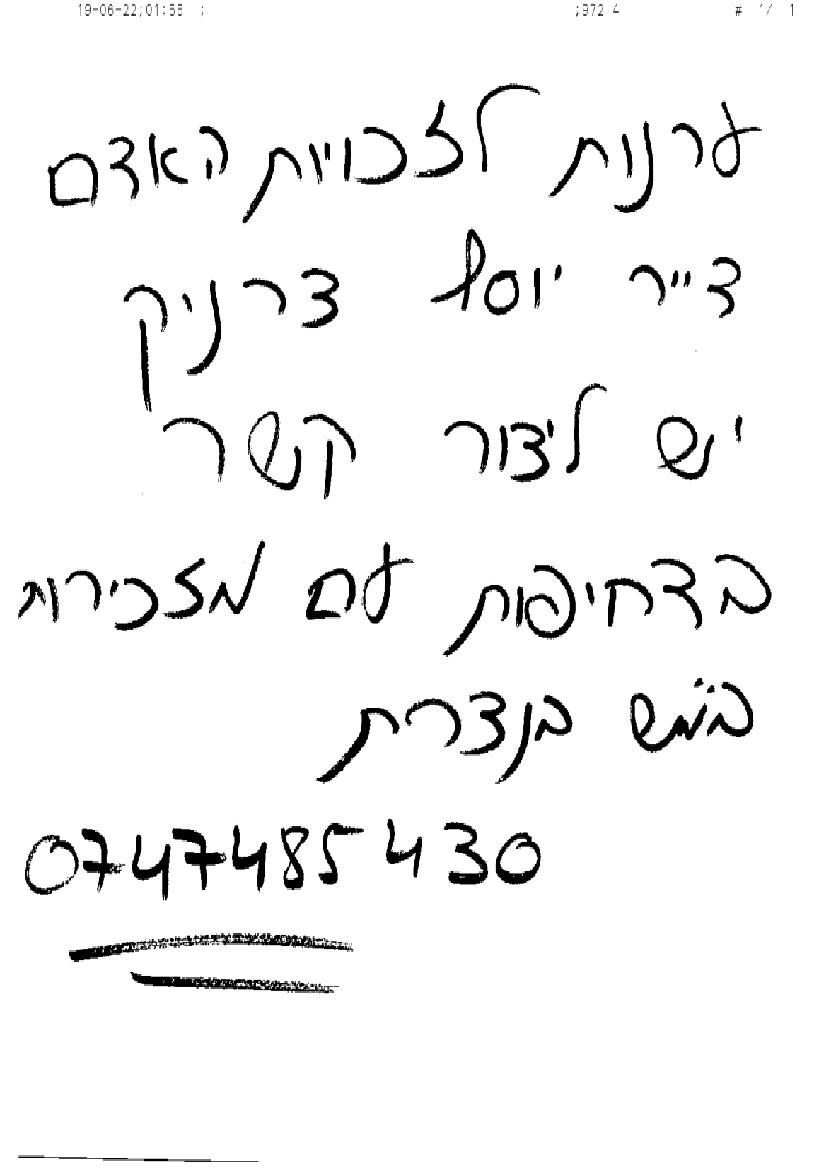 19-06-22;01:55 ; ;972 4 # 1/ 1
ערנות לזכויות האדם
ד״ר יוסף צרניק
יש ליצור קשר
בדחיפות עם מזכירות
בימ״ש בנצרת
0747485430